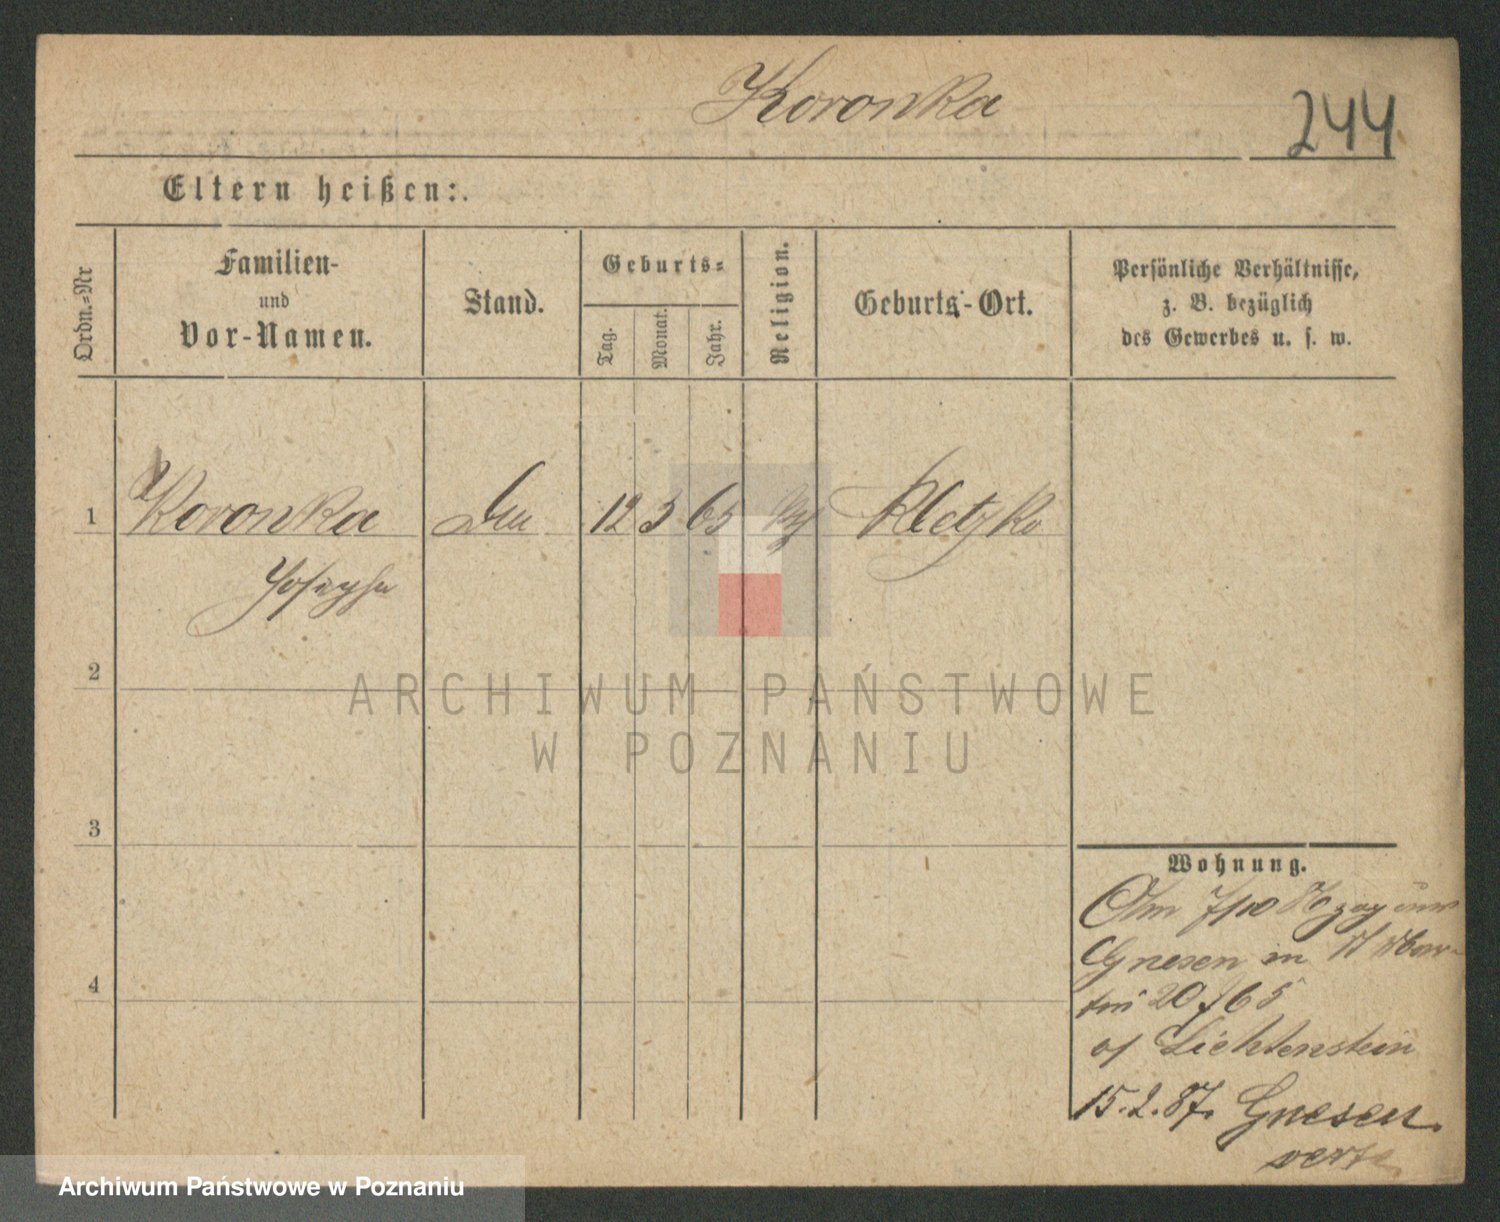 Koronka
244
Eltern heißen:
Ordn.-Nr
Familien-
und
Vor-Namen.
Stand.
Geburts-
Tag.
Monat.
Jahr.
Religion.
Geburts-Ort.
Persönliche Verhältnisse,
z. B. bezüglich
des Gewerbes u. s. w.
1
Koronka
12 3 65
Kletzko
Josepha
2
ARCHIWUM PAŃSTWOWE
W POZNANIU
3
Wohnung.
7/10 86
Gnesen in
20
Lichtenstein
15.2.87. Gnesen
verte
4
Archiwum Państwowe w Poznaniu